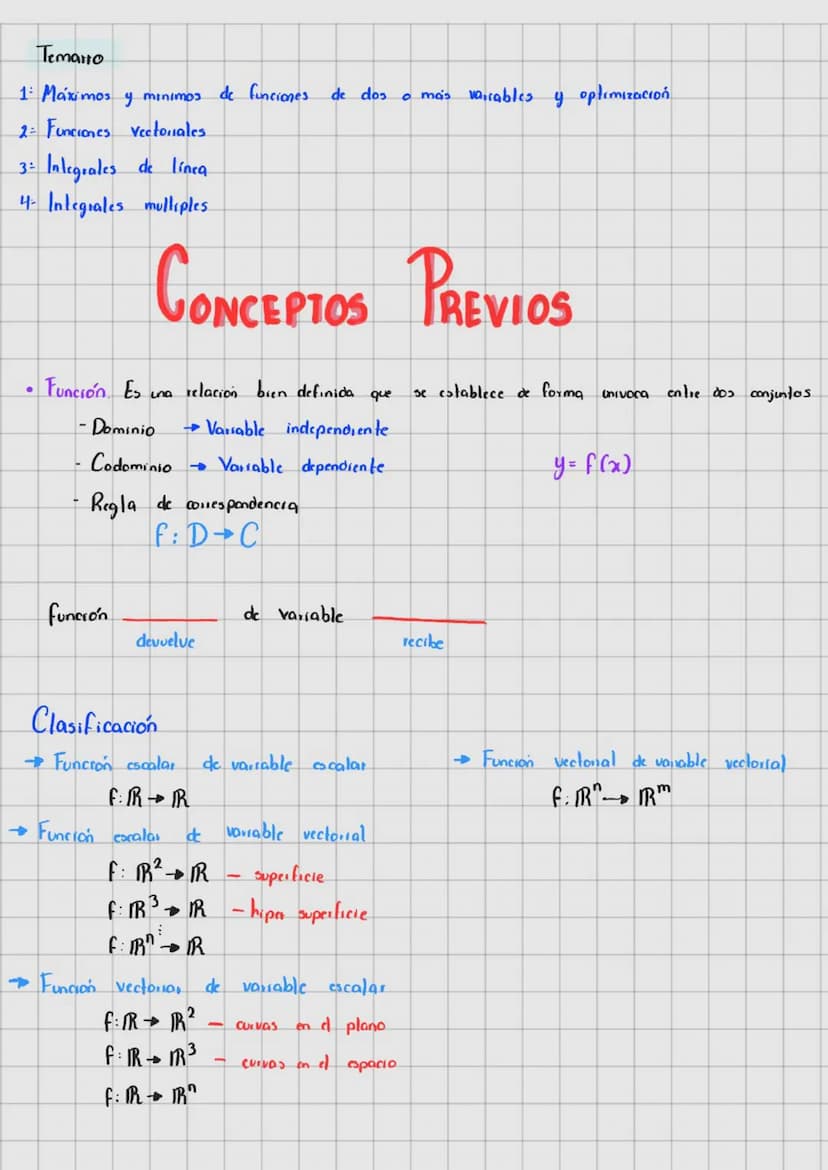 Temario
1: Máximos y mínimos de funciones de dos o más variables y optimización
2: Funciones vectoriales
3: Integrales de línea
4- Integrales multiples
CONCEPTOS PREVIOS
• Función. Es una relación bien definida que se establece de forma univoca entre dos conjuntos
- Dominio → Variable independiente
- Codominio → Variable dependiente
y = f(x)
- Regla de correspondencia
f: D → C
función ______ de variable ______
devuelve recibe
Clasificación
→ Función escalar de variable escalar
f: ℝ → ℝ
→ Función vectorial de variable vectorial
f: ℝⁿ → ℝᵐ
→ Función escalar de variable vectorial
f: ℝ² → ℝ – superficie
f: ℝ³ → ℝ – hiper superficie
⋮
f: ℝⁿ → ℝ
→ Función vectorial de variable escalar
f: ℝ → ℝ² – curvas en el plano
f: ℝ → ℝ³ – curvas en el espacio
f: ℝ → ℝⁿ